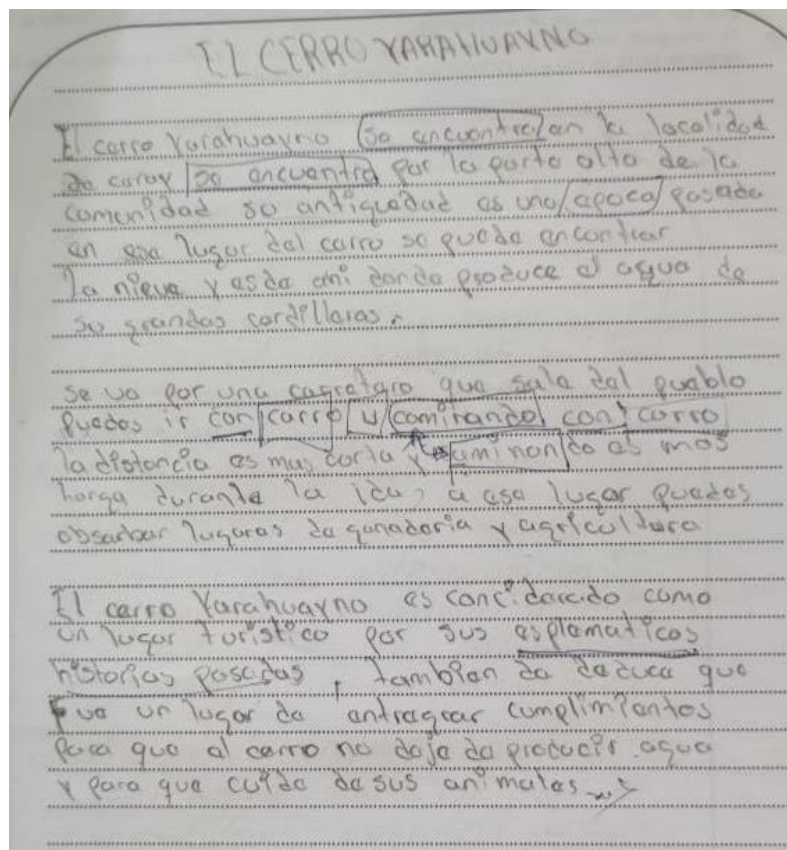 EL CERRO YARAHUAYNO
El cerro Yarahuayno se encuentra en la localidad
de caray se encuentra por la parte alto de la
comenidad so antiguedad es una epoca pasada
en ese lugar del carro se puede encontrar
la nieve y es de ahi donde produce el agua de
so grandes cordillaras.
se va por una carretaro que sale del pueblo
Puedes ir con carro u caminando con carro
la distancia es mas corta y caminando es mas
harga durante la ida, a ese lugar puedes
obserbar lugares de ganaderia y agricultura
El cerro Yarahuayno es concidarado como
un lugar turistico por sus esplematicos
historias pasadas, tambien de deduce que
Fue un lugar de entragrar cumplimientos
para que el cerro no deje de producir agua
y para que cuide de sus animales